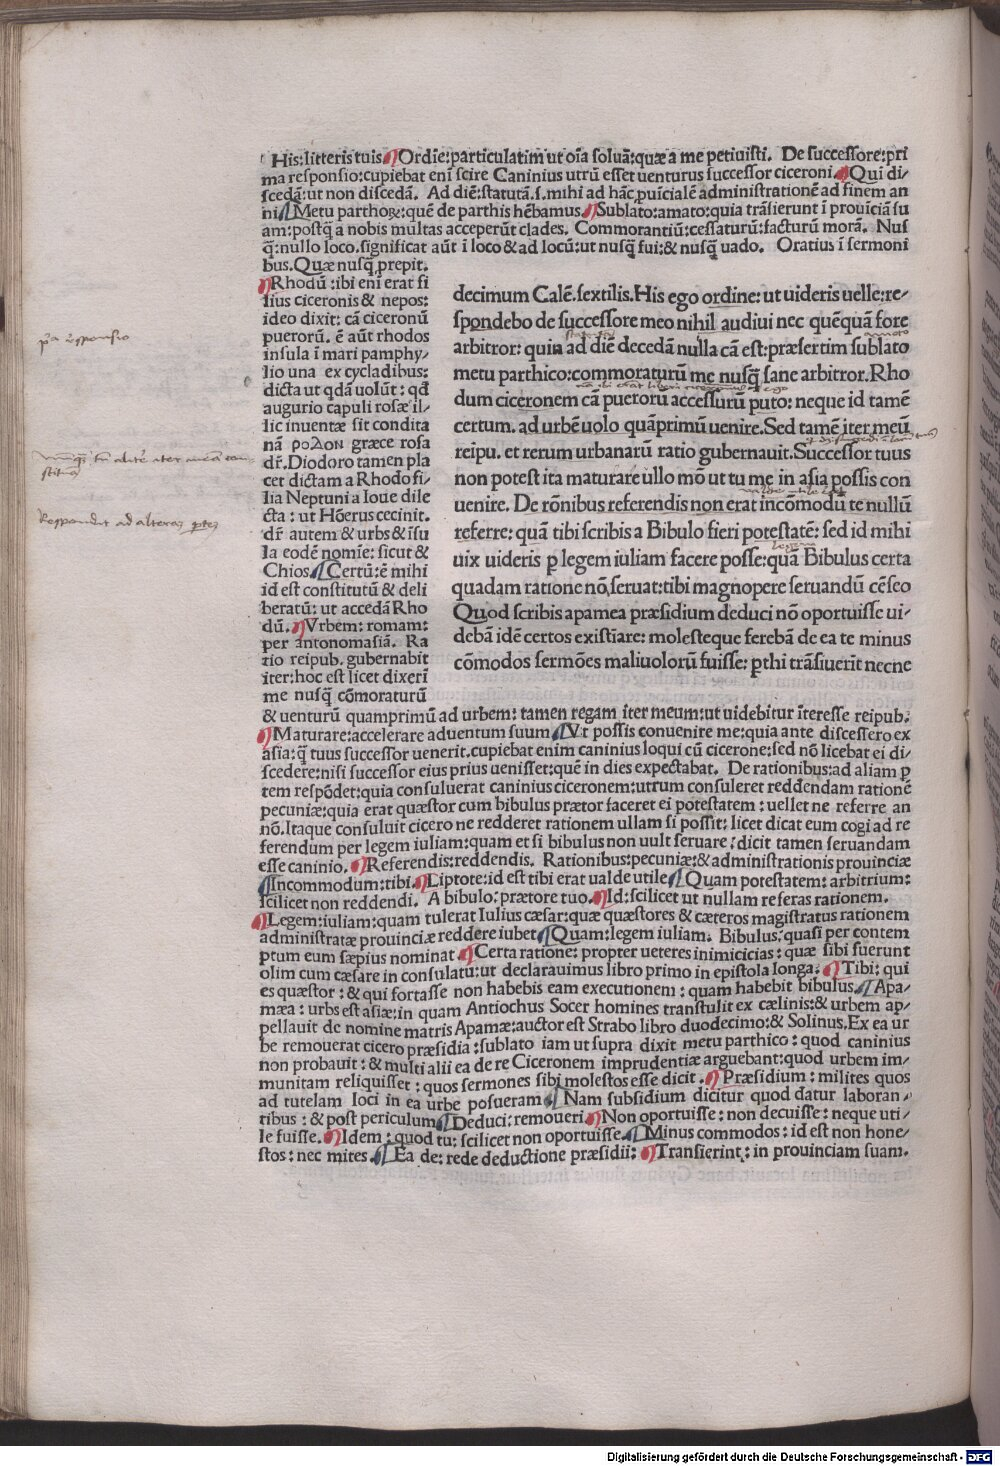 His: litteris tuis ¶ Ordīe: particulatim ut oīa soluā: quæ a me petiuisti. De successore: pri
ma responsio: cupiebat enī scire Caninius utrū esset uenturus successor ciceroni. ¶ Qui di/
scedā: ut non discedā. Ad diē: statutā .s. mihi ad hāc ꝓuīcialē administrationē ad finem an
ni ¶ Metu parthoꝝ: quē de parthis hēbamus ¶ Sublato: amato: quia trāsierunt ī prouīciā su
am: postq̄ a nobis multas acceperūt clades. Commorantiū: cessaturū: facturū morā. Nus
q̄: nullo loco. significat aūt ī loco & ad locū: ut nusq̄ fui: & nusq̄ uado. Oratius ī sermoni
bus. Quæ nusq̄ prepit.
¶ Rhodū: ibi enī erat fi
lius ciceronis & nepos:
ideo dixit: cā ciceronū
puerorū. ē aūt rhodos
insula ī mari pamphy/
lio una ex cycladibus:
dicta ut qdā uolūt: qd
augurio capuli rosæ il/
lic inuentæ sit condita
nā ροδον græce rosa
dr̄. Diodoro tamen pla
cet dictam a Rhodo fi/
lia Neptuni a Ioue dile
cta: ut Hōerus cecinit.
dr̄ autem & urbs & īsu
la eodē nomīe: sicut &
Chios ¶ Certū: ē mihi
id est constitutū & deli
beratū: ut accedā Rho
dū. ¶ Vrbem: romam:
per antonomasiā. Ra
tio reipub. gubernabit
iter: hoc est licet dixeri
me nusq̄ cōmoraturū
decimum Calē. sextilis. His ego ordine: ut uideris uelle: re/
spondebo de successore meo nihil audiui nec quēquā fore
arbitror: quin ad diē decedā nulla cā est: præsertim sublato
metu parthico: commoraturū me nusq̄ sane arbitror. Rho
dum ciceronem cā puerorū accessurū puto: neque id tamē
certum. ad urbē uolo quāprimū uenire. Sed tamē iter meū
reipu. et rerum urbanarū ratio gubernauit. Successor tuus
non potest ita maturare ullo mō ut tu me in asia possis con
uenire. De rōnibus referendis non erat incōmodū te nullū
referre: quā tibi scribis a Bibulo fieri potestatē: sed id mihi
uix uideris p legem iuliam facere posse: quā Bibulus certa
quadam ratione nō, seruat: tibi magnopere seruandū cēseo
Quod scribis apamea præsidium deduci nō oportuisse ui/
debā idē certos existīare: molesteque ferebā de ea te minus
cōmodos sermōes maliuolorū fuisse: pthi trāsiuerīt necne
& uenturū quamprimū ad urbem: tamen regam iter meum: ut uidebitur īteresse reipub.
¶ Maturare: accelerare aduentum suum ¶ Vt possis conuenire me: quia ante discessero ex
asia: q̄ tuus successor uenerit. cupiebat enim caninius loqui cū cicerone: sed nō licebat ei di/
scedere: nisi successor eius prius uenisset: quē in dies expectabat. De rationibus: ad aliam p
tem respōdet: quia consuluerat caninius ciceronem: utrum consuleret reddendam rationē
pecuniæ: quia erat quæstor cum bibulus prætor faceret ei potestatem: uellet ne referre an
nō. Itaque consuluit cicero ne redderet rationem ullam si possit: licet dicat eum cogi ad re
ferendum per legem iuliam: quam et si bibulus non uult seruare: dicit tamen seruandam
esse caninio. ¶ Referendis: reddendis. Rationibus: pecuniæ: & administrationis prouinciæ
¶ Incommodum: tibi. ¶ Liptote: id est tibi erat ualde utile ¶ Quam potestatem: arbitrium:
scilicet non reddendi. A bibulo: prætore tuo. ¶ Id: scilicet ut nullam referas rationem.
¶ Legem: iuliam: quam tulerat Iulius cæsar: quæ quæstores & cæteros magistratus rationem
administratæ prouinciæ reddere iubet ¶ Quam: legem iuliam. Bibulus: quasi per contem
ptum eum sæpius nominat ¶ Certa ratione: propter ueteres inimicicias: quæ sibi fuerunt
olim cum cæsare in consulatu: ut declarauimus libro primo in epistola longa. ¶ Tibi: qui
es quæstor: & qui fortasse non habebis eam executionem: quam habebit bibulus. ¶ Apa/
mæa: urbs est asiæ: in quam Antiochus Socer homines transtulit ex cælinis: & urbem ap/
pellauit de nomine matris Apamæ: auctor est Strabo libro duodecimo: & Solinus. Ex ea ur
be remouerat cicero præsidia: sublato iam ut supra dixit metu parthico: quod caninius
non probauit: & multi alii ea de re Ciceronem imprudentiæ arguebant: quod urbem im/
munitam reliquisset: quos sermones sibi molestos esse dicit. ¶ Præsidium: milites quos
ad tutelam loci in ea urbe posueram ¶ Nam subsidium dicitur quod datur laboran/
tibus: & post periculum ¶ Deduci: remoueri ¶ Non oportuisse: non decuisse: neque uti/
le fuisse. ¶ Idem: quod tu: scilicet non oportuisse ¶ Minus commodos: id est non hone/
stos: nec mites ¶ Ea de: re de deductione præsidii: ¶ Transierint: in prouinciam suam.
Respondet ad alteram partem
Digitalisierung gefördert durch die Deutsche Forschungsgemeinschaft - DFG